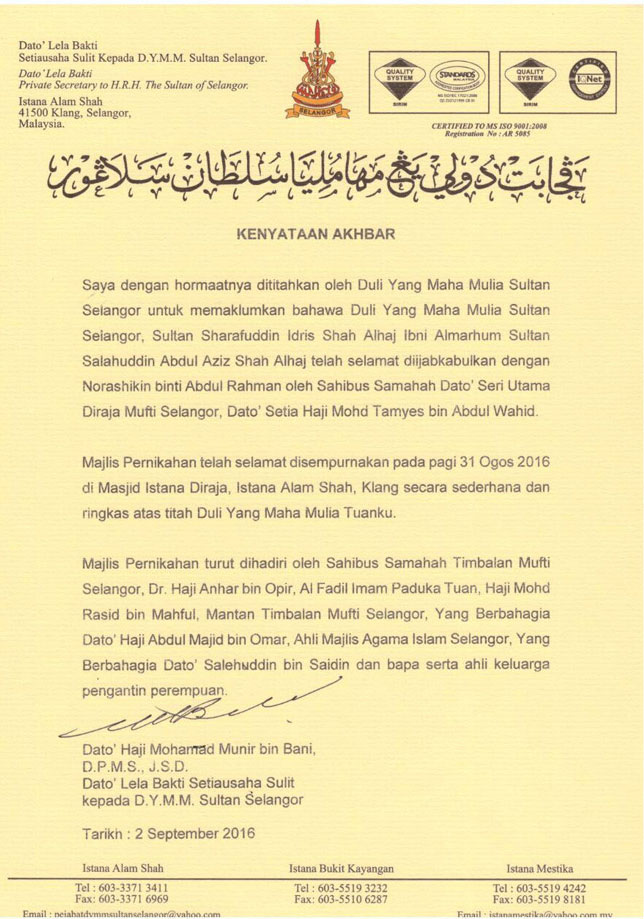 Dato' Lela Bakti
Setiausaha Sulit Kepada D.Y.M.M. Sultan Selangor.
Dato' Lela Bakti
Private Secretary to H.R.H. The Sultan of Selangor.
Istana Alam Shah
41500 Klang, Selangor,
Malaysia.
SELANGOR
QUALITY
SYSTEM
SIRIM
STANDARDS
MALAYSIA
QUALITY
SYSTEM
SIRIM
IQNet
CERTIFIED TO MS ISO 9001:2008
Registration No : AR 5085
ڤجابت دولي يڠ مها موليا سلطان سلاڠور
KENYATAAN AKHBAR
Saya dengan hormaatnya dititahkan oleh Duli Yang Maha Mulia Sultan
Selangor untuk memaklumkan bahawa Duli Yang Maha Mulia Sultan
Selangor, Sultan Sharafuddin Idris Shah Alhaj Ibni Almarhum Sultan
Salahuddin Abdul Aziz Shah Alhaj telah selamat diijabkabulkan dengan
Norashikin binti Abdul Rahman oleh Sahibus Samahah Dato' Seri Utama
Diraja Mufti Selangor, Dato' Setia Haji Mohd Tamyes bin Abdul Wahid.
Majlis Pernikahan telah selamat disempurnakan pada pagi 31 Ogos 2016
di Masjid Istana Diraja, Istana Alam Shah, Klang secara sederhana dan
ringkas atas titah Duli Yang Maha Mulia Tuanku.
Majlis Pernikahan turut dihadiri oleh Sahibus Samahah Timbalan Mufti
Selangor, Dr. Haji Anhar bin Opir, Al Fadil Imam Paduka Tuan, Haji Mohd
Rasid bin Mahful, Mantan Timbalan Mufti Selangor, Yang Berbahagia
Dato' Haji Abdul Majid bin Omar, Ahli Majlis Agama Islam Selangor, Yang
Berbahagia Dato' Salehuddin bin Saidin dan bapa serta ahli keluarga
pengantin perempuan.
Dato' Haji Mohamad Munir bin Bani,
D.P.M.S., J.S.D.
Dato' Lela Bakti Setiausaha Sulit
kepada D.Y.M.M. Sultan Selangor
Tarikh : 2 September 2016
Istana Alam Shah
Tel : 603-3371 3411
Fax: 603-3371 6969
Email : pejabatdymmsultanselangor@yahoo.com
Istana Bukit Kayangan
Tel : 603-5519 3232
Fax: 603-5510 6287
Istana Mestika
Tel : 603-5519 4242
Fax: 603-5519 8181
Email : istanamestika@yahoo.com.my